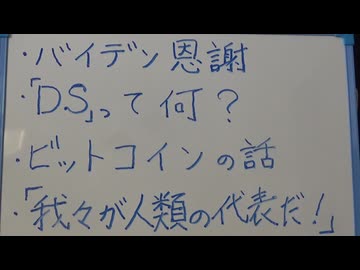 ・バイデン恩謝
・「DS」って何？
・ビットコインの話
・「我々が人類の代表だ！」